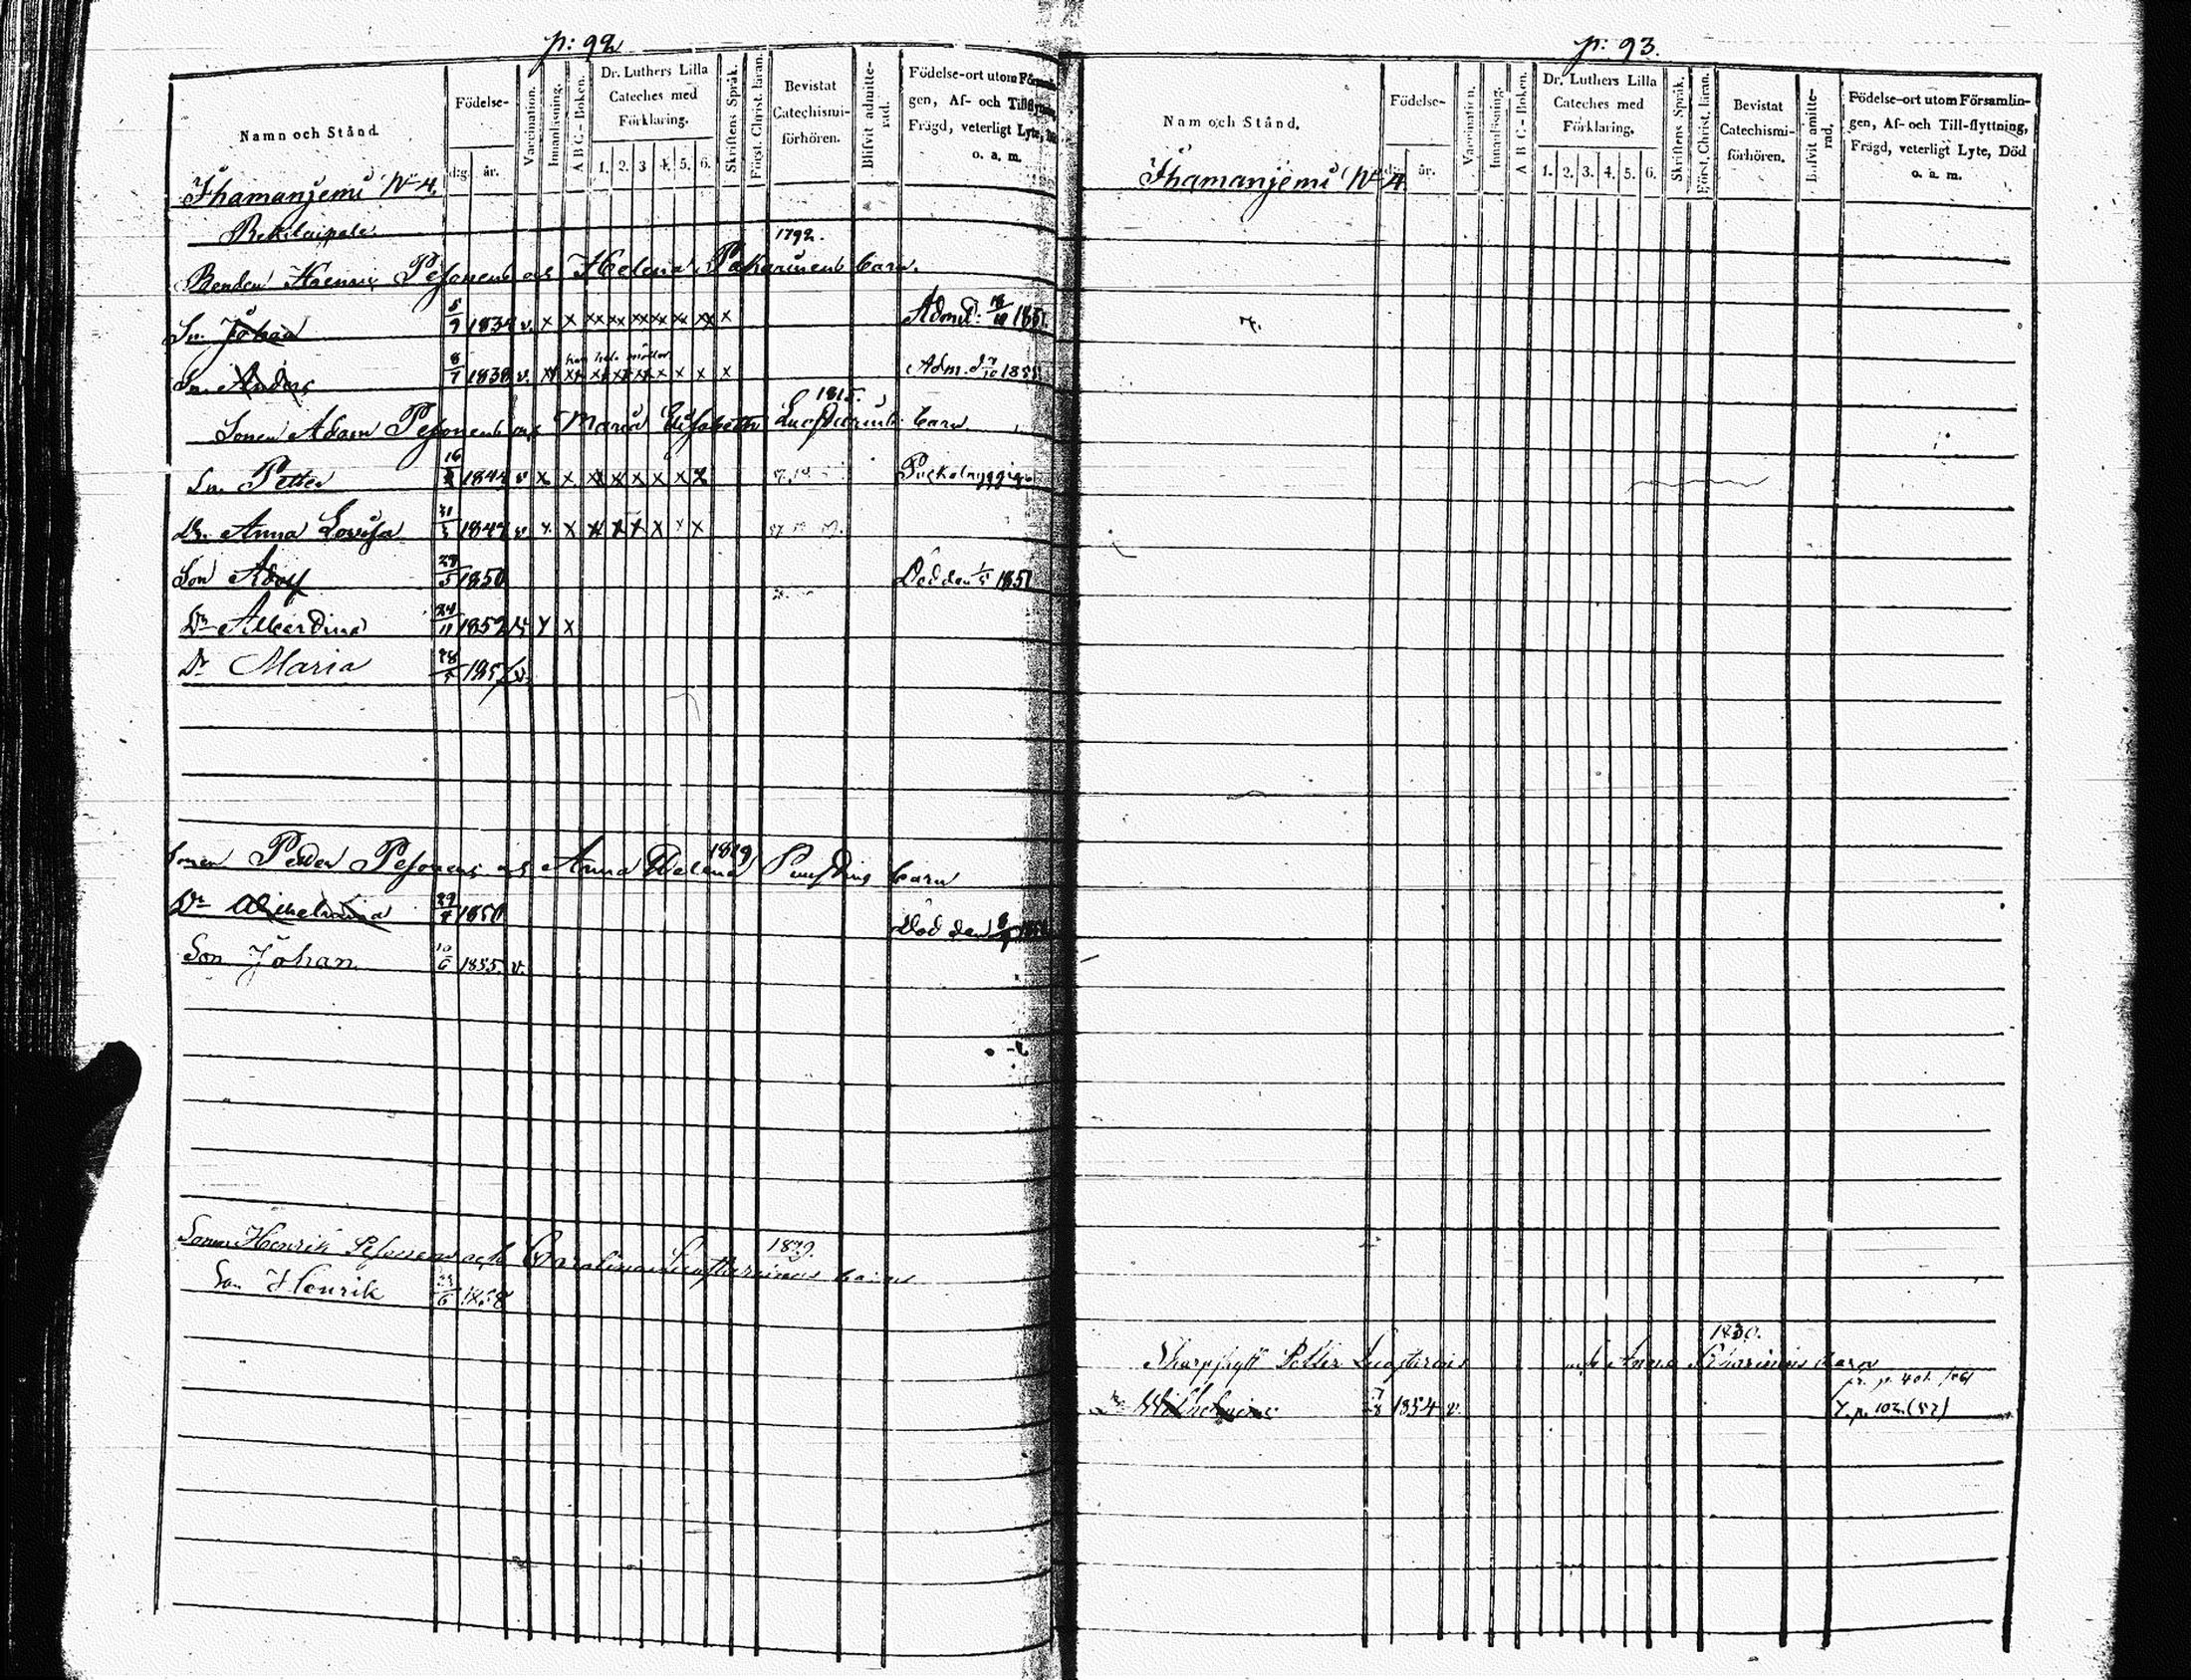 p: 92
Namn och Stånd.
Födelse-
dag.
år.
Vaccination.
Innanläsning.
A B C - Boken.
Dr. Luthers Lilla
Cateches med
Förklaring.
1. 2. 3 4. 5. 6.
Skriftens Språk.
Först. Christ. läran.
Bevistat
Catechismi-
förhören.
Blifvit admitte-
rad.
Födelse-ort utom Försam
gen, Af- och Tillflyttn
Frägd, veterligt Lyte,
o. a. m.
Ihamaniemi N 4.
1792.
Bonden Henric Pesonens och Helena barn.
Sn. Johan 5/9 1834 v. x x xx xx xx xx xx xx x Admit: 18/10 1851.
Sn. Anders 8/7 1838 v. x x x x x x x x x Adm. d 7/10 1855
1815.
Sonen Adam Pesonens och Maria Elisabeth barn
Sn. Petter 16 1844 v x x x x x x x x Puckelryggig
Dr. Anna Lovisa 1847 v x x x x x x x x
Son Adolf 29/5 1850 Död den 1851
Dr Albertina 24/11 1852 v x x
Dr Maria 28 1857 v.
1819
Sonen Peder Pesonens och Anna Helena barn
Dr Wilhelmina 29 1850 Död den
Son Johan 10/6 1855. v.
1829.
Sonen Henrik Pesonens och Carolina barn
Son Henrik 6 1858
p: 93.
Namn och Stånd.
Födelse-
år.
Vaccination.
Innanläsning.
A B C - Boken.
Dr. Luthers Lilla
Cateches med
Förklaring.
1. 2. 3. 4. 5. 6.
Skriftens Språk.
Först. Christ. läran.
Bevistat
Catechismi-
förhören.
Blifvit amitte-
rad.
Födelse-ort utom Församlin-
gen, Af- och Till-flyttning,
Frägd, veterligt Lyte, Död
o. a. m.
Ihamaniemi N 4.
1830.
Petter och Anna barn
fr. p. 401.
Dr Wilhelmina 7/8 1854 v. T. p. 102. (57)